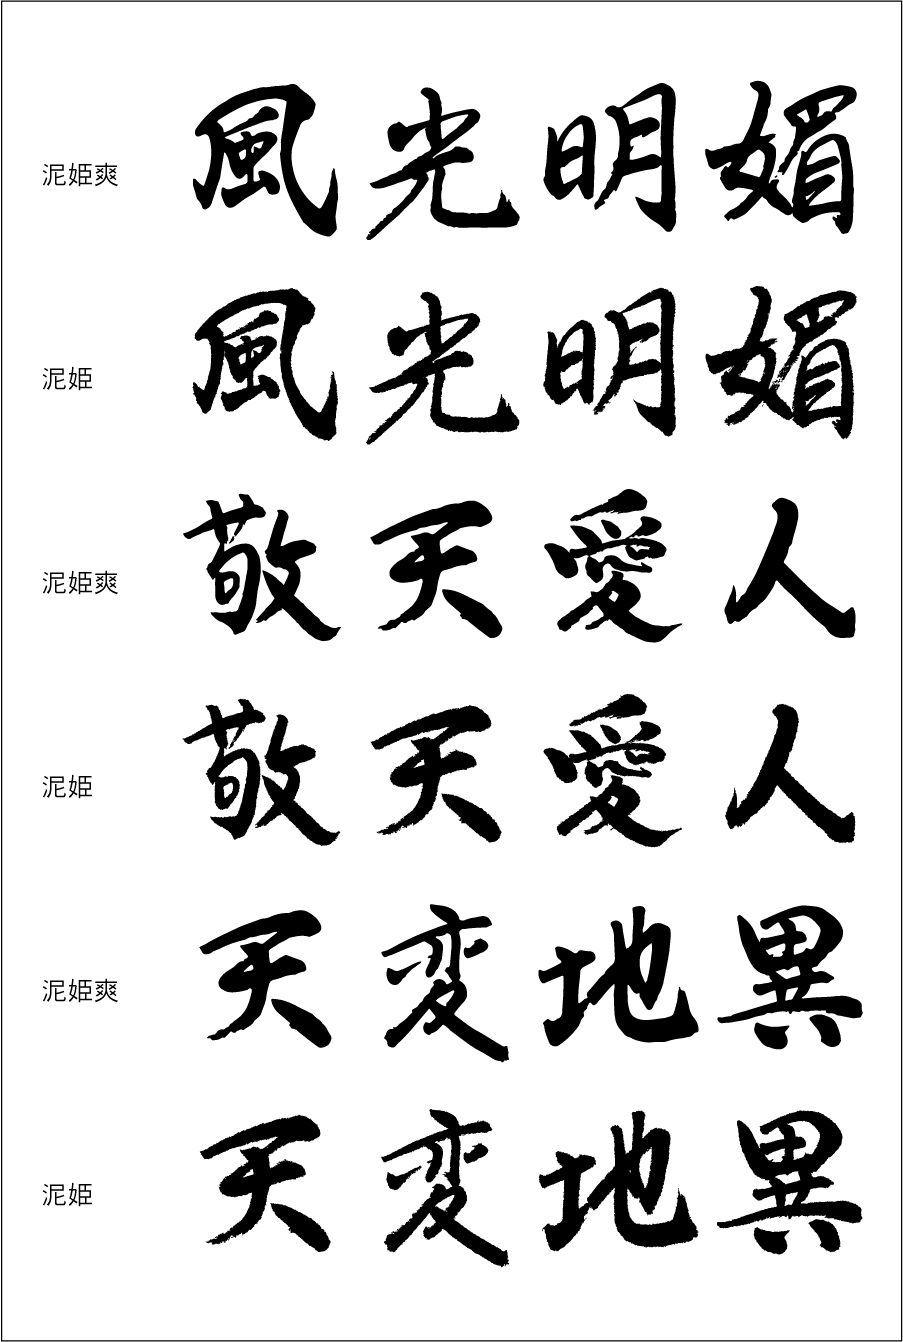 泥姫爽 風光明媚
泥姫 風光明媚
泥姫爽 敬天愛人
泥姫 敬天愛人
泥姫爽 天変地異
泥姫 天変地異